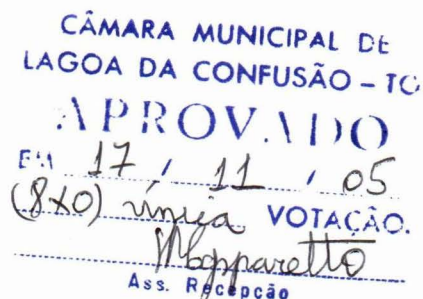 CÂMARA MUNICIPAL DE
LAGOA DA CONFUSÃO – TO
APROVADO
EM 17 / 11 / 05
(8x0) única VOTAÇÃO.
Ass. Recepção